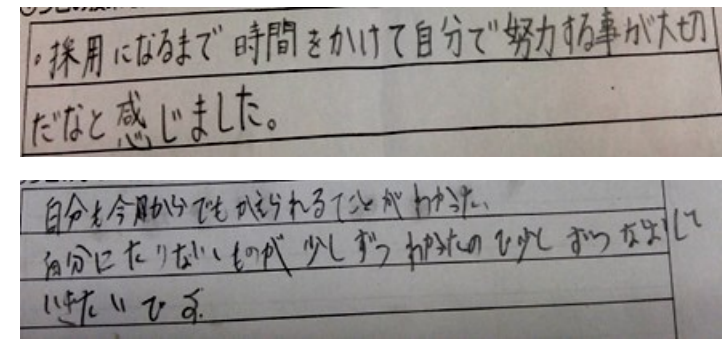 ・採用になるまで時間をかけて自分で努力する事が大切
だなと感じました。
自分も今日からでもかえられることがわかった。
自分にたりないものが少しずつわかったので少しずつなおして
いきたいです.